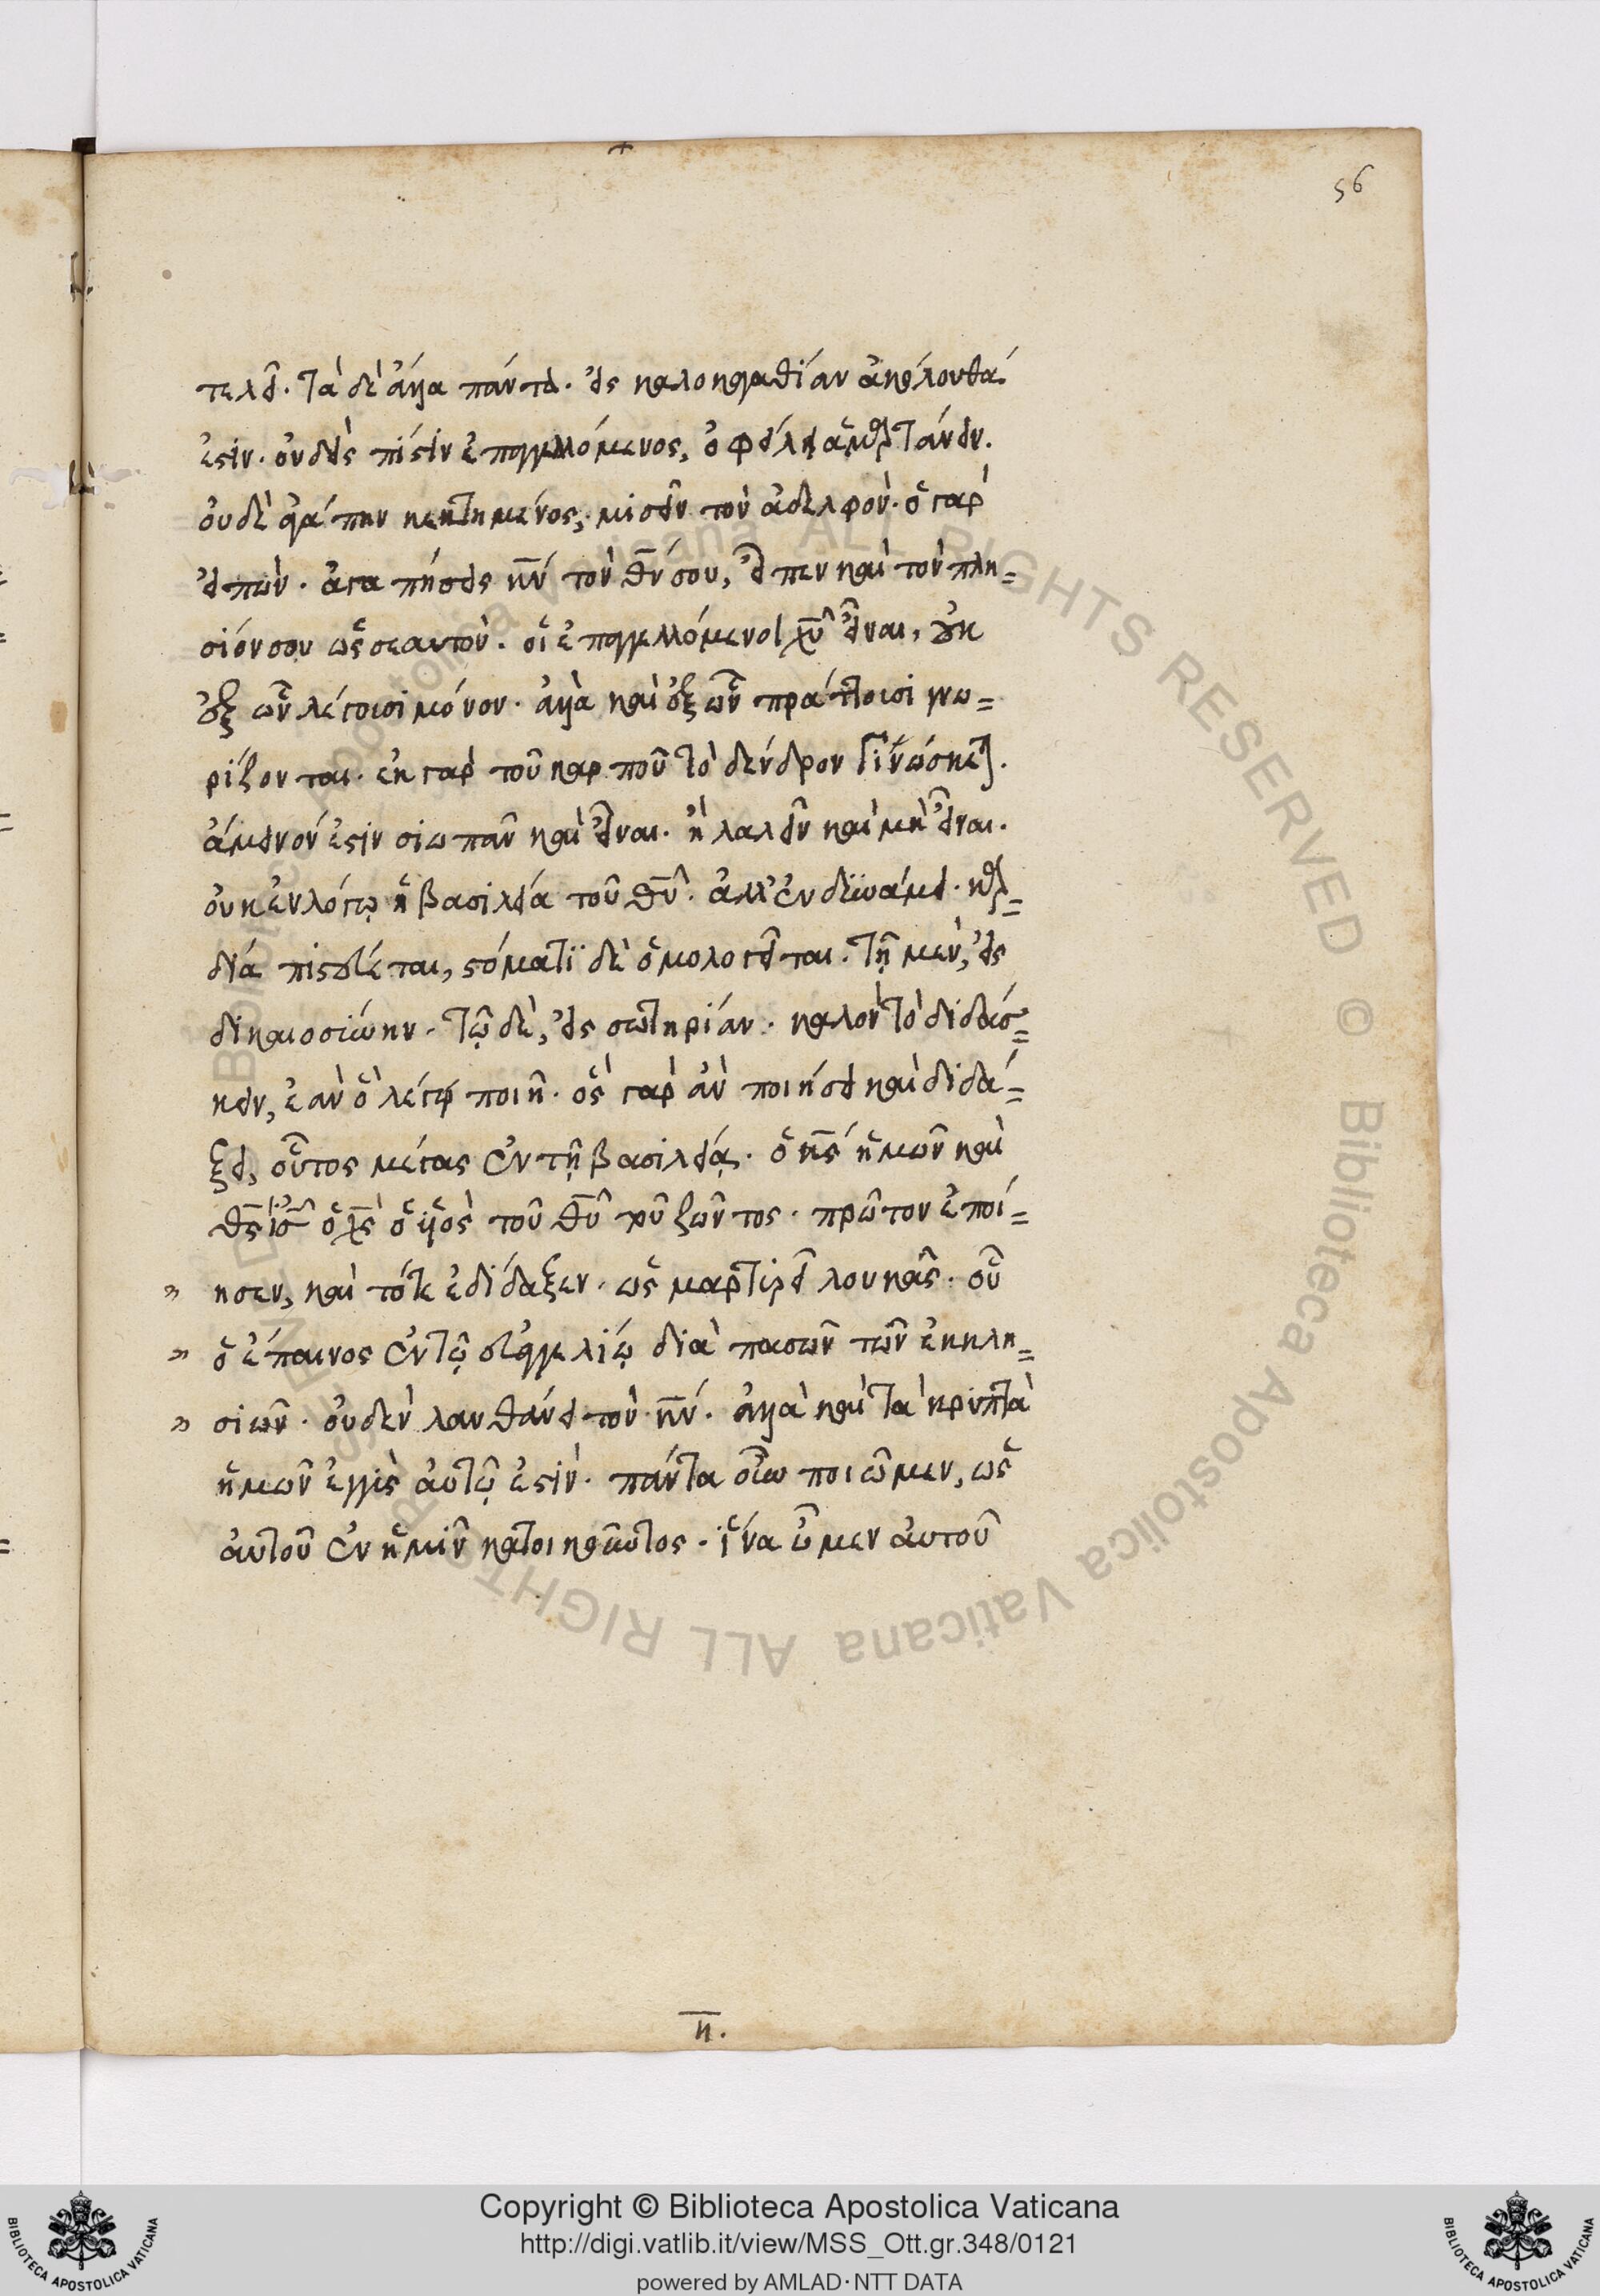 56
τελεῖ. τὰ δὲ ἄλλα πάντα. εἰς καλοκαγαθίαν ἀκόλουθά
ἐστιν. οὐδεὶς πίστιν ἐπαγγελλόμενος, ὀφείλει ἁμαρτάνειν.
οὐδὲ ἀγάπην κεκτημένος, μισεῖν τὸν ἀδελφόν. ὁ γὰρ
εἰπών. ἀγαπήσεις κν τὸν θν σου, εἶπεν καὶ τὸν πλη=
σίον σου ὡς σεαυτόν. οἱ ἐπαγγελλόμενοι χυ εἶναι, οὐκ
ἐξ ὧν λέγουσι μόνον. ἀλλὰ καὶ ἐξ ὧν πράττουσι γνω=
ρίζονται. ἐκ γὰρ τοῦ καρποῦ τὸ δένδρον γινώσκεται.
ἄμεινόν ἐστιν σιωπᾶν καὶ εἶναι. ἢ λαλεῖν καὶ μὴ εἶναι.
οὐκ ἐν λόγῳ ἡ βασιλεία τοῦ θυ. ἀλλ' ἐν δυνάμει. καρ=
δία πιστεύεται, στόματι δὲ ὁμολογεῖται. τῇ μὲν, εἰς
δικαιοσύνην. τῷ δὲ, εἰς σωτηρίαν. καλὸν τὸ διδάσ=
κειν, ἐὰν ὁ λέγων ποιῇ. ὃς γὰρ ἂν ποιήσει καὶ διδά=
ξει, οὗτος μέγας ἐν τῇ βασιλείᾳ. ὁ κς ἡμῶν καὶ
θς ις ὁ χς ὁ υἱὸς τοῦ θυ τοῦ ζῶντος. πρῶτον ἐποί=
» ησεν, καὶ τότε ἐδίδαξεν. ὡς μαρτυρεῖ λουκᾶς. οὗ
» ὁ ἔπαινος ἐν τῷ εὐαγγελίῳ διὰ πασῶν τῶν ἐκκλη=
» σιῶν. οὐδὲν λανθάνει τὸν κν. ἀλλὰ καὶ τὰ κρυπτὰ
ἡμῶν ἐγγὺς αὐτῷ ἐστιν. πάντα οὕτω ποιῶμεν, ὡς
αὐτοῦ ἐν ἡμῖν κατοικοῦντος. ἵνα ὦμεν αὐτοῦ
η.
Copyright © Biblioteca Apostolica Vaticana
http://digi.vatlib.it/view/MSS_Ott.gr.348/0121
powered by AMLAD·NTT DATA
BIBLIOTECA APOSTOLICA VATICANA
BIBLIOTECA APOSTOLICA VATICANA